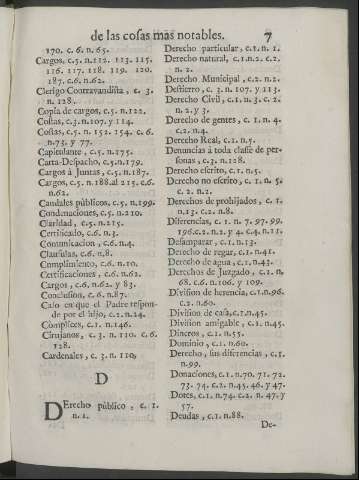 de las cosas mas notables. 7
170. c. 6. n. 65.
Cargos, c.5. n.112. 113. 115.
116. 117. 118. 119. 120.
187. c.6. n.62.
Clerigo Contravandista, c. 3.
n. 128.
Copia de cargos, c.5. n.122.
Costas, c.3. n.107. y 114.
Costas, c.5. n. 152. 154. c. 6.
n.73. y 77.
Capitulante, c.5. n.175.
Carta-Despacho, c.5.n.179.
Cargos à Juntas, c.5. n.187.
Cargos, c.5. n.188.al 215. c.6.
n.62.
Caudales públicos, c.5. n.199.
Condenaciones, c.5. n.210.
Claridad, c.5. n.215.
Certificado, c.6. n.3.
Comunicacion, c.6. n.4.
Clausulas, c.6. n.8.
Cumplimiento, c.6. n.10.
Certificaciones, c.6. n.62.
Cargos, c.6. n.62. y 83.
Conclusion, c.6. n.87.
Caso en que el Padre respon-
de por el hijo, c.2. n.24.
Complices, c.1. n.146.
Cirujanos, c.3. n.110. c.6.
128.
Cardenales, c.3. n.110.
D
DErecho público, c.1.
n.1.
Derecho particular, c.1. n.1.
Derecho natural, c.1.n.2. c.2.
n.2.
Derecho Municipal, c.2. n.2.
Destierro, c.3. n.107. y 113.
Derecho Civil, c.1. n.3. c.2.
n.2. y 3.
Derecho de gentes, c.1. n.4.
c.2. n.4.
Derecho Real, c.1. n.5.
Denuncias à toda classe de per-
sonas, c.3. n.128.
Derecho escrito, c.1. n.5.
Derecho no escrito, c.1. n.5.
c.2. n.2.
Derechos de prohijados, c.1.
n.13. c.2. n.8.
Diferencias, c.1. n.7. 97. 99.
196.c.2. n.2. y 4. c.4. n.11.
Desamparar, c.1. n.13.
Derecho de regar, c.1. n.41.
Derecho de agua, c.1. n.43.
Derechos de Juzgado, c.1. n.
68. c.6. n.106. y 109.
Division de herencia, c.1.n.96.
c.2. n.60.
Division de casa, c.1.n.45.
Division amigable, c.1. n.45.
Dineros, c.1. n.55.
Dominio, c.1. n.60.
Derecho, sus diferencias, c.1.
n.99.
Donaciones, c.1. n.70. 71. 72.
73. 74. c.2. n.45. 46. y 47.
Dotes, c.1. n.74. c.2. n.47. y
57.
Deudas, c.1. n.88.
De-